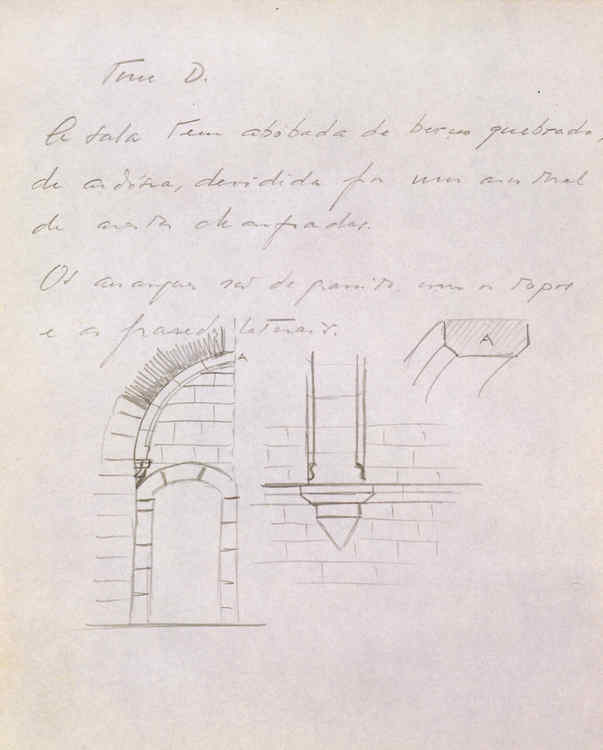 Torre D.
A sala tem abóbada de berço quebrado,
de ardósia, devidida por um arco
de arestas chanfradas.
Os arranques são de granito como os topos
e as paredes laterais.
A
A